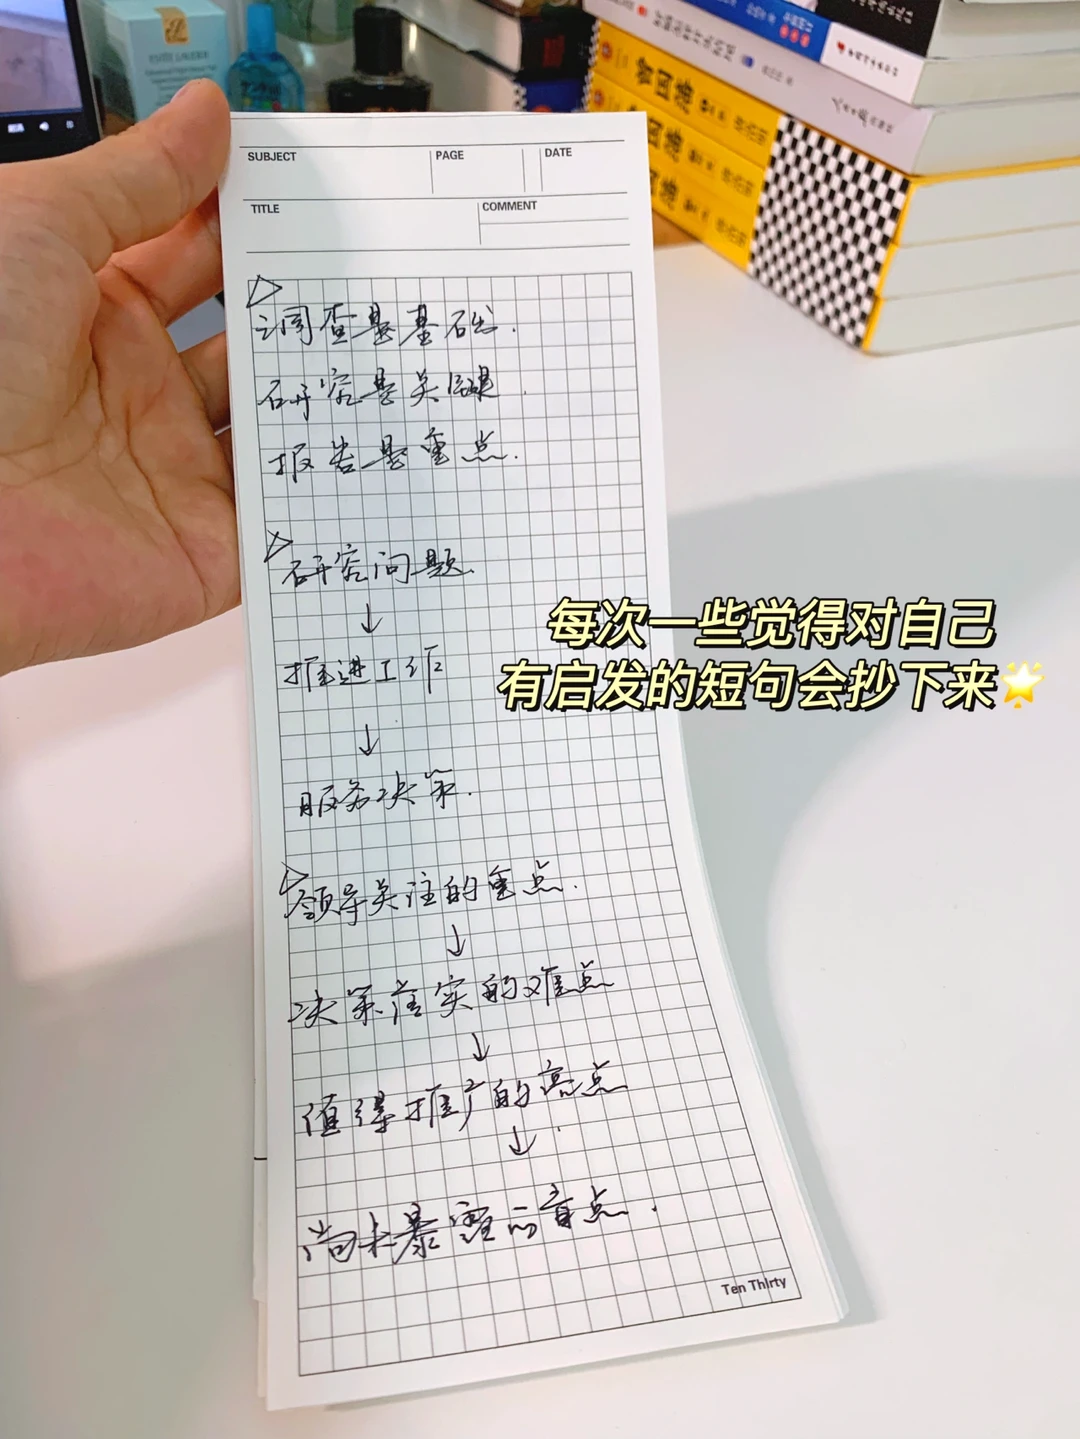 ESTEE LAUDER
曾国藩
曾国藩
曾国藩
SUBJECT
PAGE
DATE
TITLE
COMMENT
调查是基础.
研究是关键.
报告是重点.
研究问题.
↓
推进工作
↓
服务决策.
领导关注的重点.
↓
决策落实的难点
↓
值得推广的亮点
↓
尚未暴露的盲点.
每次一些觉得对自己
有启发的短句会抄下来🌟
Ten Thirty